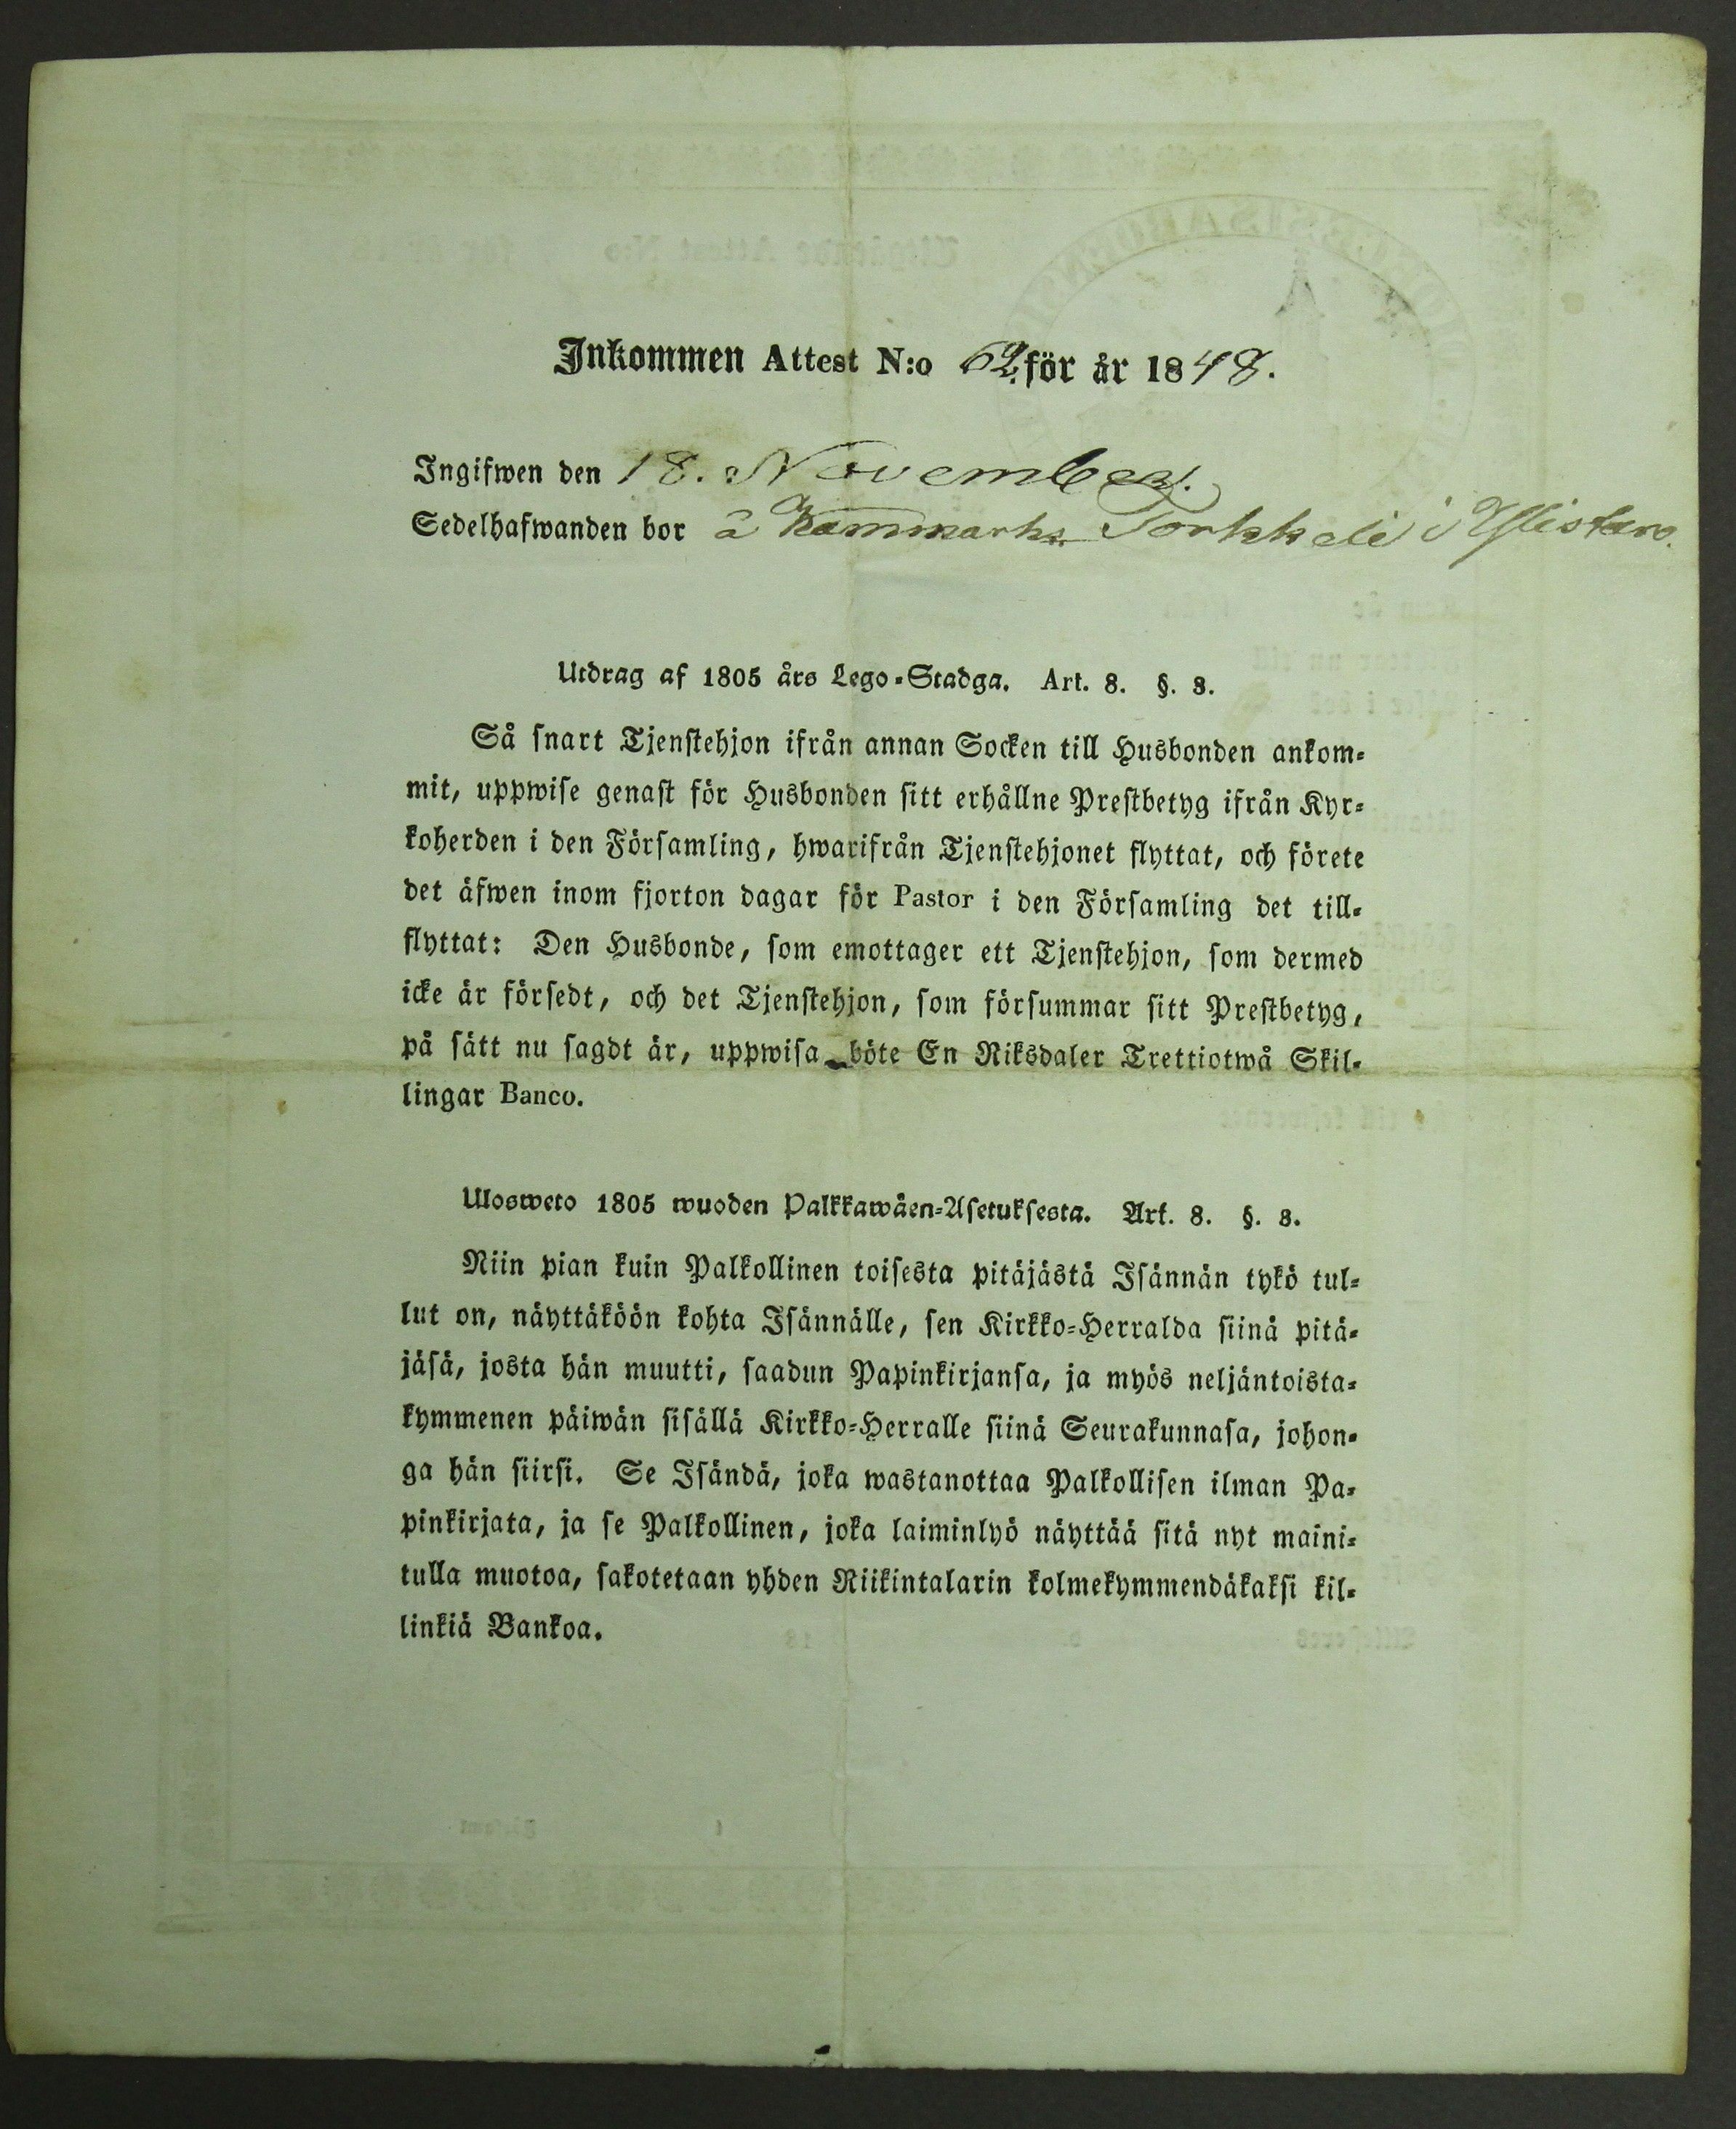 Inkommen Attest N:o 62. för år 1848.
Ingifwen den 18. November.
Sedelhafwanden bor å Kammarks Torkkeli i Ylistaro.
Utdrag af 1805 års Lego-Stadga. Art. 8. §. 3.
Så snart Tjenstehjon ifrån annan Socken till Husbonden ankom-
mit, uppwise genast för Husbonden sitt erhållne Prestbetyg ifrån Kyr-
koherden i den Församling, hwarifrån Tjenstehjonet flyttat, och förete
det äfwen inom fjorton dagar för Pastor i den Församling det till-
flyttat: Den Husbonde, som emottager ett Tjenstehjon, som dermed
icke är försedt, och det Tjenstehjon, som försummar sitt Prestbetyg,
på sätt nu sagdt är, uppwisa böte En Riksdaler Trettiotwå Skil-
lingar Banco.
Ulosweto 1805 wuoden Palkkawäen-Asetuksesta. Art. 8. §. 3.
Niin pian kuin Palkollinen toisesta pitäjästä Isännän tykö tul-
lut on, näyttäköön kohta Isännälle, sen Kirkko-Herralda siinä pitä-
jäsä, josta hän muutti, saadun Papinkirjansa, ja myös neljäntoista-
kymmenen päiwän sisällä Kirkko-Herralle siinä Seurakunnasa, johon-
ga hän siirsi. Se Isändä, joka wastanottaa Palkollisen ilman Pa-
pinkirjata, ja se Palkollinen, joka laiminlyö näyttää sitä nyt maini-
tulla muotoa, sakotetaan yhden Riikintalarin kolmekymmendäkaksi kil-
linkiä Bankoa.